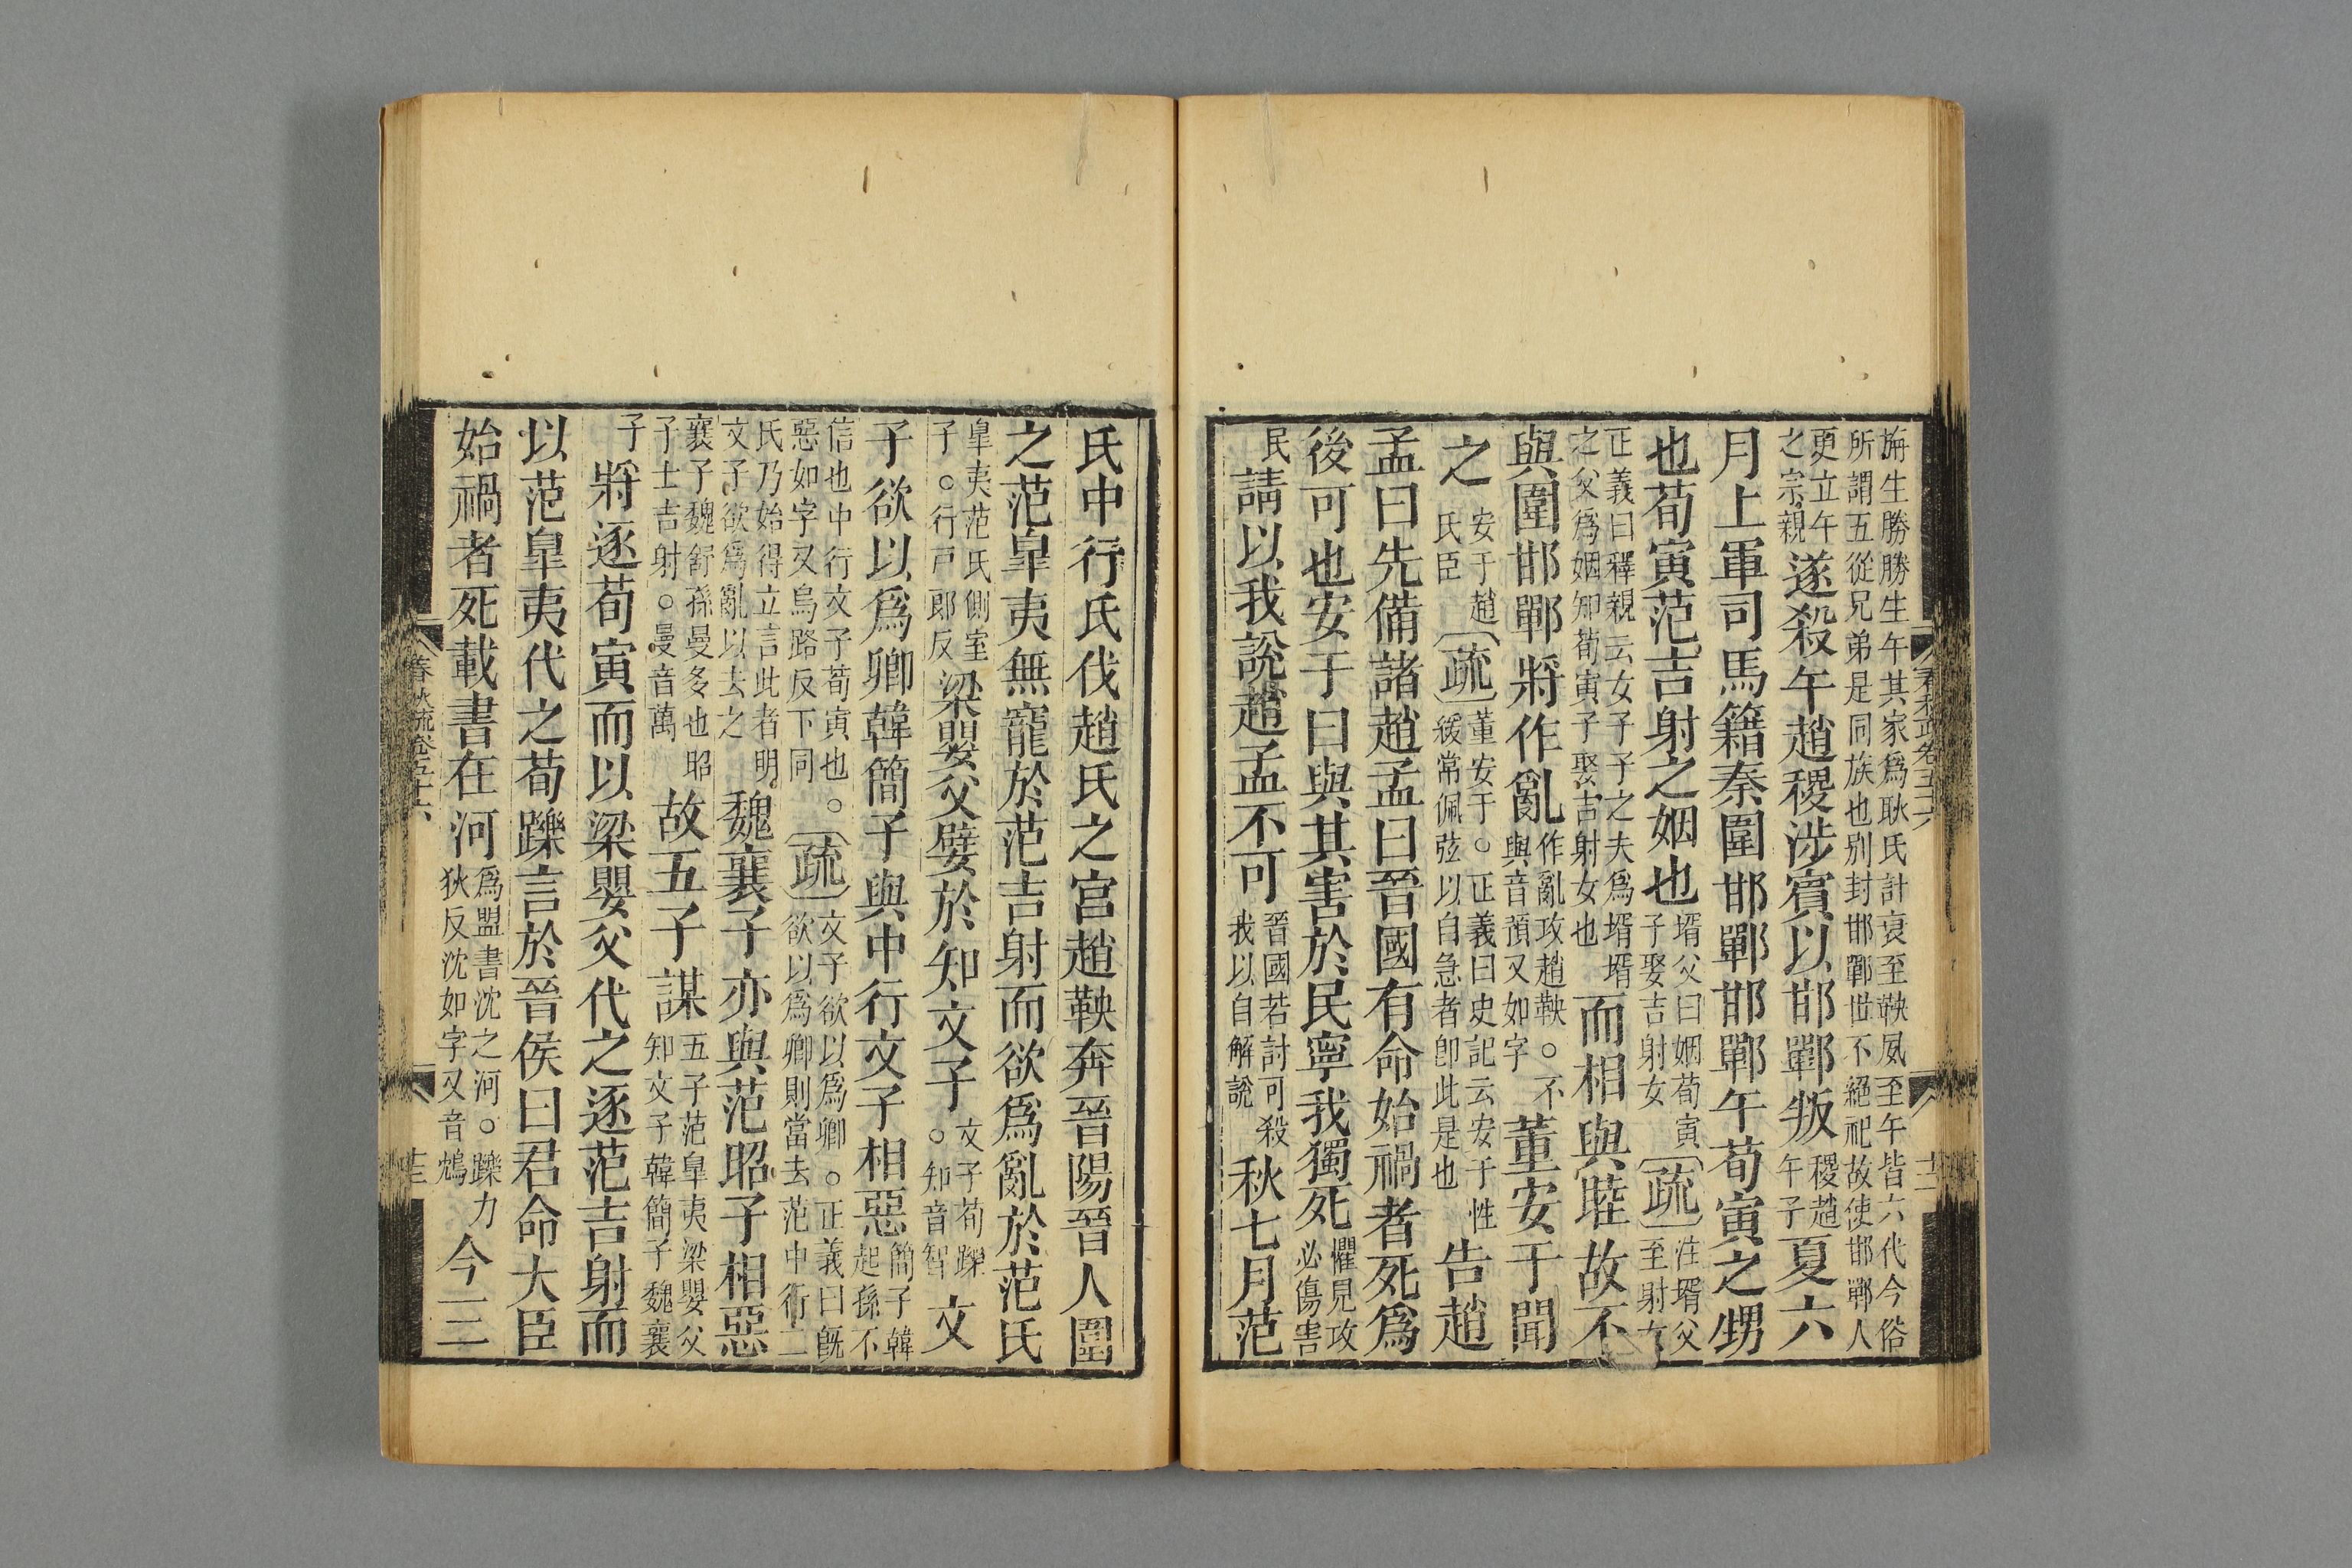 旃生勝勝生午其家爲耿氏計衰至鞅夙至午皆六代今俗
所謂五從兄弟是同族也別封邯鄲世不絕祀故使邯鄲人
更立午之宗親遂殺午趙稷涉賓以邯鄲叛稷趙午子夏六
月上軍司馬籍秦圍邯鄲邯鄲午荀寅之甥
也荀寅范吉射之姻也壻父曰姻荀寅子娶吉射女〔疏〕注壻父至射女
正義曰釋親云女子子之夫爲壻壻之父爲姻知荀寅子娶吉射女也而相與睦故不
與圍邯鄲將作亂作亂攻趙鞅○不與音預又如字董安于聞
之安于趙氏臣〔疏〕董安于○正義曰史記云安于性緩常佩弦以自急者卽此是也告趙
孟曰先備諸趙孟曰晉國有命始禍者死爲
後可也安于曰與其害於民寧我獨死懼見攻必傷害
民請以我說趙孟不可晉國若討可殺我以自解說秋七月范
氏中行氏伐趙氏之宮趙鞅奔晉陽晉人圍
之范皐夷無寵於范吉射而欲爲亂於范氏
皐夷范氏側室子○行戸郎反梁嬰父嬖於知文子文子荀躒○知音智文
子欲以爲卿韓簡子與中行文子相惡簡子韓起孫不
信也中行文子荀寅也○惡如字又烏路反下同〔疏〕文子欲以爲卿○正義曰旣欲以爲卿則當去范中行二
氏乃始得立言此者明文子欲爲亂以去之魏襄子亦與范昭子相惡
襄子魏舒孫曼多也昭子士吉射○曼音萬故五子謀五子范皐夷梁嬰父知文子韓簡子魏襄
子將逐荀寅而以梁嬰父代之逐范吉射而
以范皐夷代之荀躒言於晉侯曰君命大臣
始禍者死載書在河爲盟書沈之河○躒力狄反沈如字又音鴆今三
春秋疏卷五十六
十三